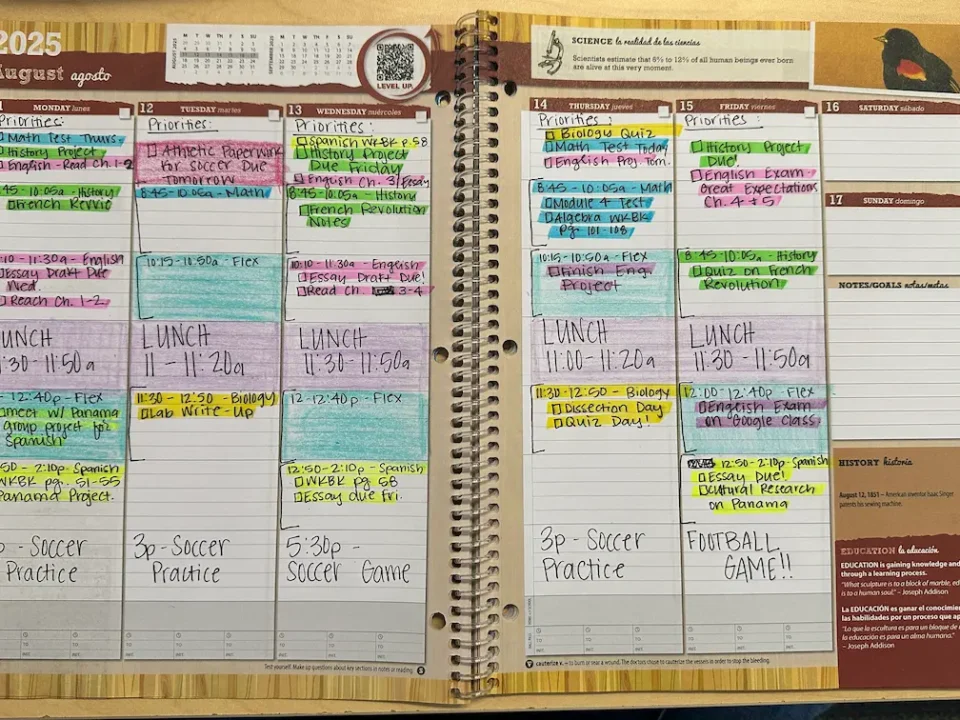 2025
August agosto
LEVEL UP
SCIENCE la realidad de las ciencias
Scientists estimate that 6⅔ to 12⅔ of all human beings ever born
are alive at this very moment.
MONDAY lunes
Math Test Thurs.
History Project
English - Read Ch. 1-2
:45 - 10:05a - History
French Revvie
:10 - 11:30a - English
Essay Draft Due
Wed.
Reach Ch. 1-2
LUNCH
:30 - 11:50a
- 12:40p - Flex
meet w/ Panama
group project for
Spanish
:50 - 2:10p - Spanish
WKBK pg. 51-55
Panama Project.
p - Soccer
Practice
12 TUESDAY martes
Priorities:
Athletic Paperwork
for soccer Due
Tomorrow
8:45 - 10:05a - Math
10:15 - 10:50a - Flex
LUNCH
11 - 11:20a
11:30 - 12:50 - Biology
Lab Write-Up
3p - Soccer
Practice
13 WEDNESDAY miércoles
Priorities:
Spanish WKBK p. 58
History Project
Due Friday
English Ch. 3/Essay
8:45 - 10:05a - History
French Revolution
Notes
10:10 - 11:30a - English
Essay Draft Due!
Read Ch. 3-4
LUNCH
11:30 - 11:50a
12 - 12:40p - Flex
12:50 - 2:10p - Spanish
WKBK pg 58
Essay due fri.
5:30p -
Soccer Game
Test yourself. Make up questions about key sections in notes or reading.
14 THURSDAY jueves
Priorities:
Biology Quiz
Math Test Today
English Proj. Tom.
8:45 - 10:05a - Math
Module 4 Test
Algebra WKBK
pg. 101-108
10:15 - 10:50a - Flex
Finish Eng.
Project
LUNCH
11:00 - 11:20a
11:30 - 12:50 - Biology
Dissection Day
Quiz Day!
3p - Soccer
Practice
15 FRIDAY viernes
Priorities:
History Project
Due!
English Exam -
Great Expectations
Ch. 4 + 5
8:45 - 10:05a - History
Quiz on French
Revolution
LUNCH
11:30 - 11:50a
12:00 - 12:40p Flex
English Exam
on Google Class
12:50 - 2:10p - Spanish
Essay Due!
Cultural Research
on Panama
FOOTBALL
GAME!!
cauterize v. – to burn or sear a wound. The doctors chose to cauterize the vessels in order to stop the bleeding.
16 SATURDAY sábado
17 SUNDAY domingo
NOTES/GOALS notas/metas
HISTORY historia
August 12, 1851 – American inventor Isaac Singer
patents his sewing machine.
EDUCATION la educación
EDUCATION is gaining knowledge and
through a learning process.
"What sculpture is to a block of marble, ed
is to a human soul." – Joseph Addison
La EDUCACIÓN es ganar el conocimien
las habilidades por un proceso que ap
"Lo que la escultura es para un bloque de m
la educación es para un alma humana."
– Joseph Addison